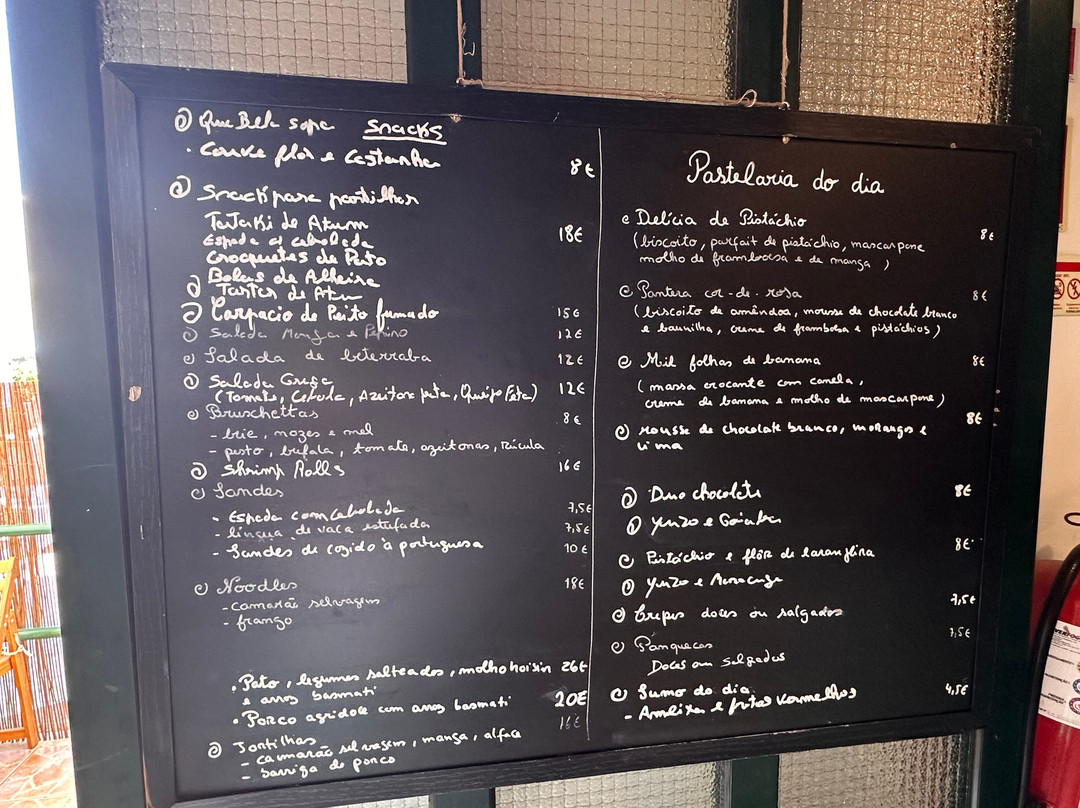 Que Bela sopa Snacks
• Couve flor e Castanha 8€
Snack para partilhar
Tataki de Atum
Espada c/ cebolada 18€
Croquetes de Pato
Bolas de Alheira
Tártar de Atum
Carpacio de Peito fumado 15€
Salada Manga e Pepino 12€
Salada de beterraba 12€
Salada Grega
(Tomate, Cebola, Azeitona preta, Queijo Feta) 12€
Bruschettas 8€
- brie, nozes e mel
- pesto, bufala, tomate, azeitonas, rúcula
Shrimp Rolls 16€
Sandes
- Espada com Cebolada 7,5€
- língua de vaca estufada 7,5€
- Sandes de cozido à portuguesa 10€
Noodles 18€
- camarão selvagem
- frango
• Pato, legumes salteados, molho hoisin 26€
e arroz basmati
• Porco agridoce com arroz basmati 20€
16€
Tortilhas
- camarão selvagem, manga, alface
- barriga de porco
Pastelaria do dia
Delícia de Pistáchio 8€
(biscoito, parfait de pistáchio, mascarpone
molho de framboesa e de manga)
Pantera cor-de-rosa 8€
(biscoito de amêndoa, mousse de chocolate branco
e baunilha, creme de framboesa e pistáchios)
Mil folhas de banana 8€
(massa crocante com canela,
creme de banana e molho de mascarpone)
8€
Mousse de chocolate branco, morangos e
lima
Duo chocolate 8€
Yuzo e Goiaba
Pistáchio e flôr de laranjeira 8€
Yuzo e Maracuja
Crepes doces ou salgados 7,5€
Panquecas 7,5€
Doces ou salgadas
Sumo do dia 4,5€
- Ameixa e frutos vermelhos